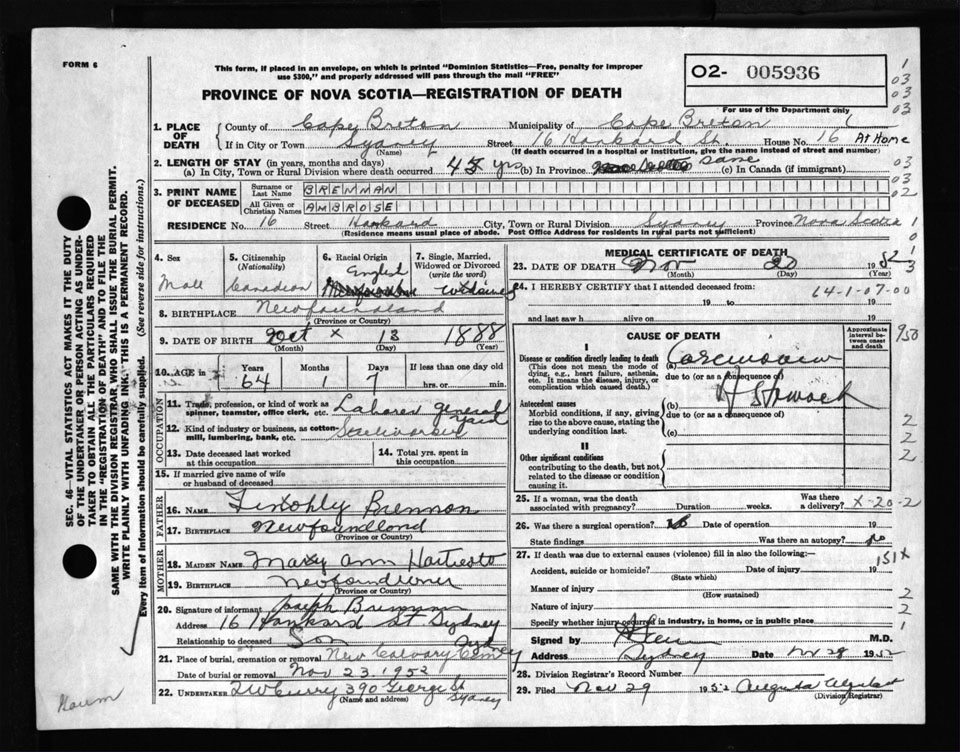 FORM 6
This form, if placed in an envelope, on which is printed "Dominion Statistics—Free, penalty for improper
use $300," and properly addressed will pass through the mail "FREE"
O2- 005936
PROVINCE OF NOVA SCOTIA—REGISTRATION OF DEATH
For use of the Department only
1
03
03
03
1. PLACE OF DEATH
County of Cape Breton Municipality of Cape Breton
If in City or Town Sydney Street 16 Hankard St. House No. 16 At Home
(Name) (If death occurred in a hospital or institution, give the name instead of street and number)
2. LENGTH OF STAY (in years, months and days)
(a) In City, Town or Rural Division where death occurred yrs. (b) In Province same (c) In Canada (if immigrant)
03
03
02
3. PRINT NAME OF DECEASED
Surname or Last Name BRENMAN
All Given or Christian Names AMBROSE
RESIDENCE No. 16 Street Hankard City, Town or Rural Division Sydney Province Nova Scotia
(Residence means usual place of abode. Post Office Address for residents in rural parts not sufficient)
4. Sex Male
5. Citizenship (Nationality) Canadian
6. Racial Origin English
7. Single, Married, Widowed or Divorced (write the word)
8. BIRTHPLACE Newfoundland
(Province or Country)
9. DATE OF BIRTH Oct 13 1888
(Month) (Day) (Year)
10. AGE in Years Months Days If less than one day old
64 1 7 hrs. or min.
OCCUPATION
11. Trade, profession, or kind of work as spinner, teamster, office clerk, etc. Laborer general
12. Kind of industry or business, as cotton-mill, lumbering, bank, etc.
13. Date deceased last worked at this occupation
14. Total yrs. spent in this occupation
15. If married give name of wife or husband of deceased
FATHER
16. Name Brennon
17. BIRTHPLACE Newfoundland
(Province or Country)
MOTHER
18. MAIDEN NAME Mary Ann
19. BIRTHPLACE
(Province or Country)
20. Signature of informant Joseph
Address 16 Hankard St. Sydney
Relationship to deceased Son
21. Place of burial, cremation or removal New Calvary Cem Sydney
Date of burial or removal Nov 23, 1952
22. UNDERTAKER Curry 390 George St Sydney
(Name and address)
MEDICAL CERTIFICATE OF DEATH
23. DATE OF DEATH Nov 20 1952
(Month) (Day) (Year)
24. I HEREBY CERTIFY that I attended deceased from
64-1-07-00
19 to 19
and last saw h alive on 19
CAUSE OF DEATH
Approximate interval between onset and death
I
Disease or condition directly leading to death (a)
(This does not mean the mode of dying, e.g., heart failure, asthenia, etc. It means the disease, injury, or complication which caused death.)
due to (or as a consequence of)
Antecedent causes (b)
Morbid conditions, if any, giving rise to the above cause, stating the underlying condition last.
due to (or as a consequence of)
(c)
II
Other significant conditions
contributing to the death, but not related to the disease or condition causing it.
2
2
2
25. If a woman, was the death associated with pregnancy? Duration weeks. Was there a delivery? X-20-2
26. Was there a surgical operation? Date of operation 19
State findings Was there an autopsy? no
27. If death was due to external causes (violence) fill in also the following:— 151X
Accident, suicide or homicide? Date of injury 19
(State which)
Manner of injury
(How sustained)
Nature of injury
Specify whether injury occurred in industry, in home, or in public place
2
2
1
Signed by M.D.
Address Sydney Date Nov 29 1952
28. Division Registrar's Record Number
29. Filed Nov 29 1952
(Division Registrar)
SEC. 46—VITAL STATISTICS ACT MAKES IT THE DUTY
OF THE UNDERTAKER OR PERSON ACTING AS UNDER-
TAKER TO OBTAIN ALL THE PARTICULARS REQUIRED
IN THE "REGISTRATION OF DEATH" AND TO FILE THE
SAME WITH THE DIVISION REGISTRAR, WHO SHALL ISSUE THE BURIAL PERMIT.
WRITE PLAINLY WITH UNFADING INK. THIS IS A PERMANENT RECORD.
Every item of information should be carefully supplied. (See reverse side for instructions.)